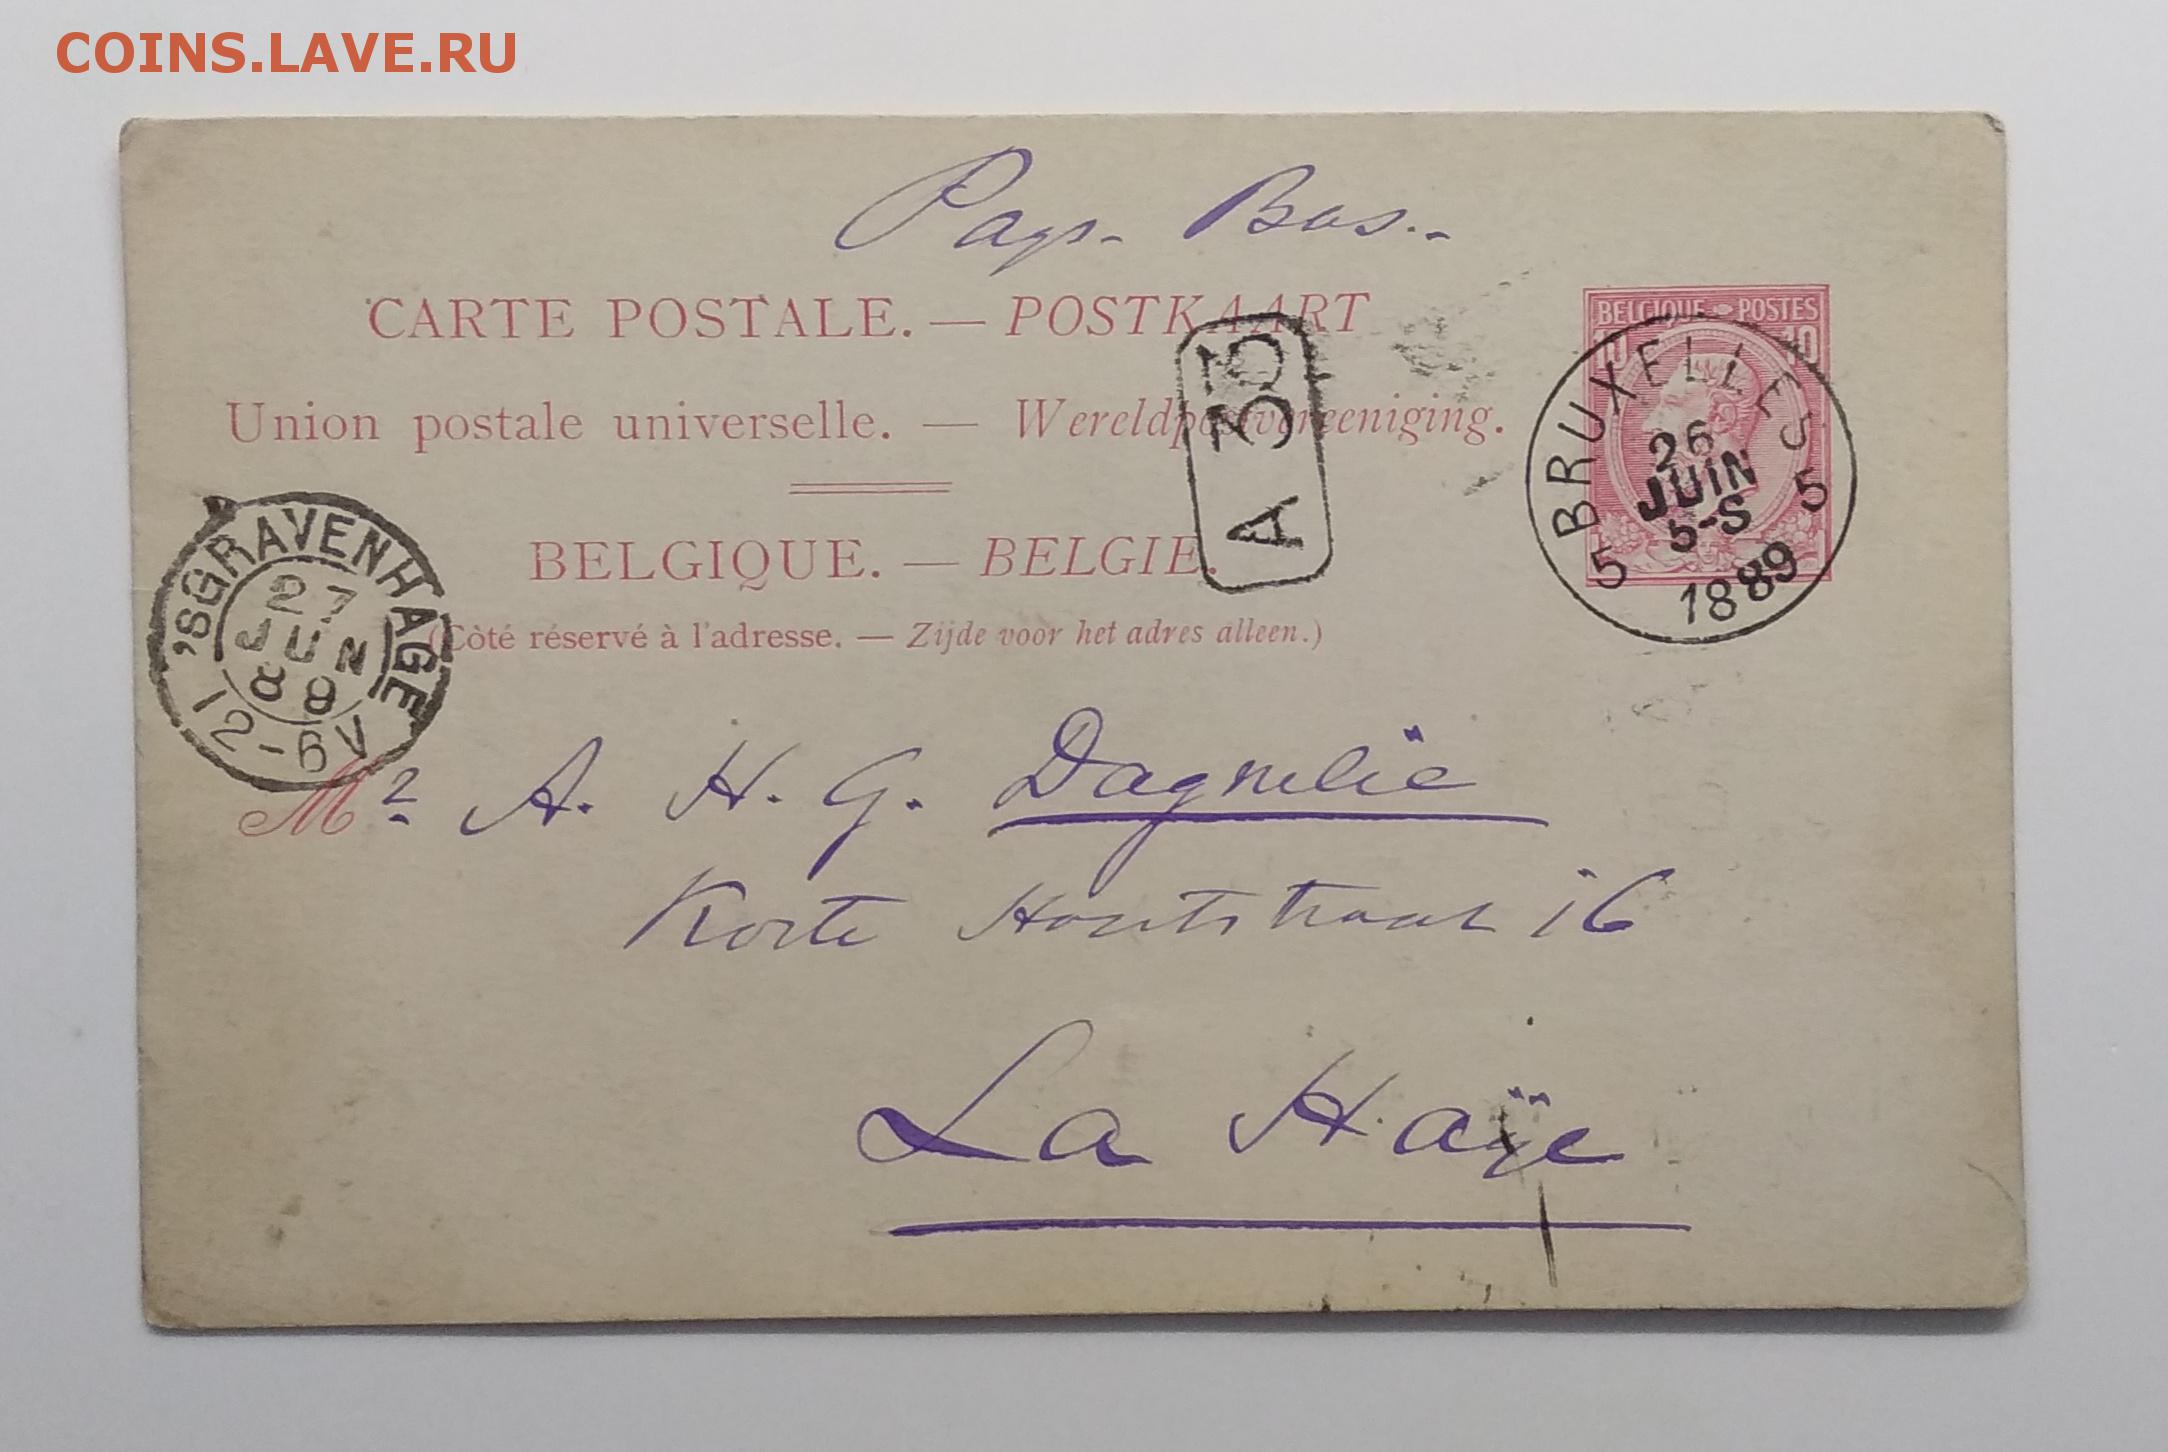 COINS.LAVE.RU
Pays-Bas.-
CARTE POSTALE. — POSTKAART
BELGIQUE POSTES
10 10
Union postale universelle. — Wereldpostvereeniging.
A 33
BRUXELLES 5
26
JUIN
5-S
1889
5
BELGIQUE. — BELGIE.
(Côté réservé à l'adresse. — Zijde voor het adres alleen.)
'SGRAVENHAGE
27
JUN
89
12-6V
Mr A. H. G. Dagnelie
Korte Houtstraat 16
La Haÿe